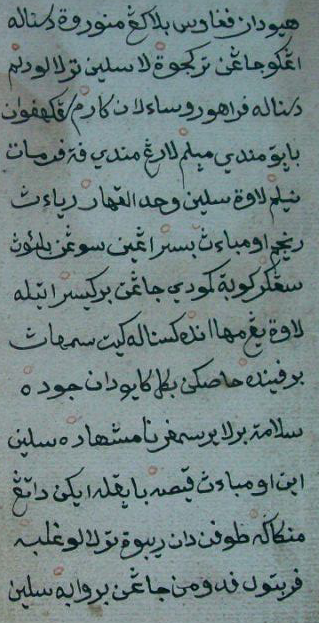 هيودان فغاوس بلاكغ منوروة دسناله
اغكو جاغن تركجوة لاسلين ترلالودلم
دسناله فراهو روساءدان كارم سكهفون
بايق مندي ميلم لارغ مندي فة فرمات
نيلم لاوة سلين وحد القهار رياءث
رنچم اومباءث بسر اغين سوغسغ بلئوث
سغكر كوبة كمودي جاغن بركيسر ايتله
لاوة يغ مها انده كسناله كيت سمهاث
برفينده حاصلكن بكل كايودان جوده
سلامة برلاير سمفرنا مشهاده سلين
اين اومباءث قيصه بايقله ايكن داتغ
منكاكه طوفن دان ريبوة ترلالو غلبه
فربتول فدومن جاغن بروابه سلين